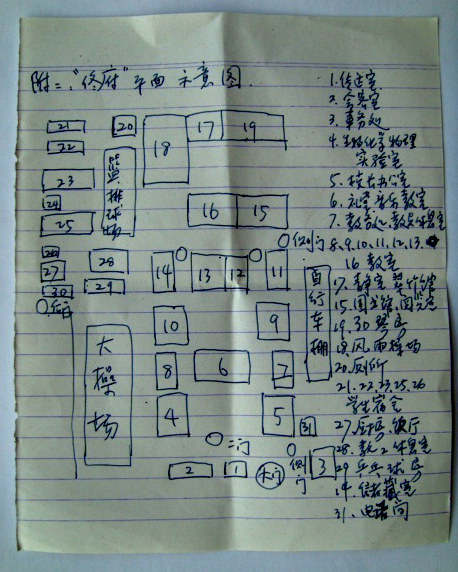 附二："佟府"平面示意图
1.传达室
2.会客室
3.事务处
4.生物化学物理
实验室
5.校长办公室
6.礼堂音乐教室
7.教务处、教员休息室
8.9.10.11.12.13.
16教室
17.教室
15.图书馆、阅览室
19.30琴房
18.风雨操场
20.厕所
21.22.23.25.26
学生宿舍
27.厨房、饭厅
28.教工休息室
29.乒乓球房
14.储藏室
31.电话间
21
20
22
23
24
25
篮排球场
18
17
19
16
15
侧门
26
27
30
28
29
后门
14
13
12
11
自行车棚
10
9
大操场
8
6
7
4
5
31
二门
侧门
3
2
1
大门